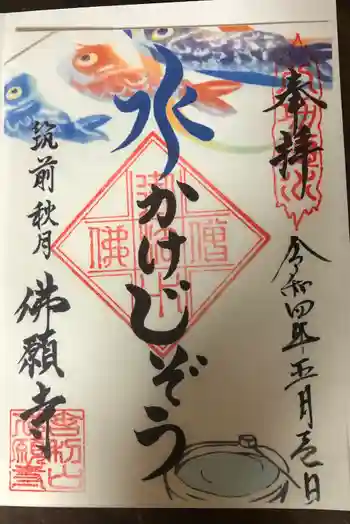 奉拝
令和四年五月壱日
水かけじぞう
筑前秋月
佛願寺
佛
僧